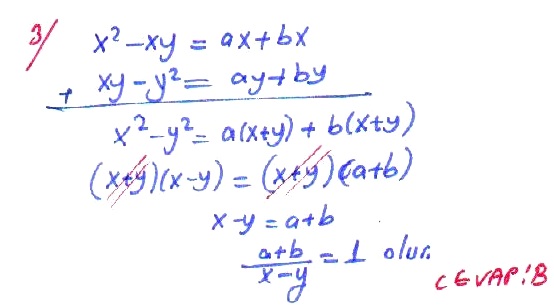 3/ x² - xy = ax + bx
+ xy - y² = ay + by
x² - y² = a(x+y) + b(x+y)
(x+y)(x-y) = (x+y)(a+b)
x - y = a + b
a+b / x-y = 1 olur.
CEVAP: B